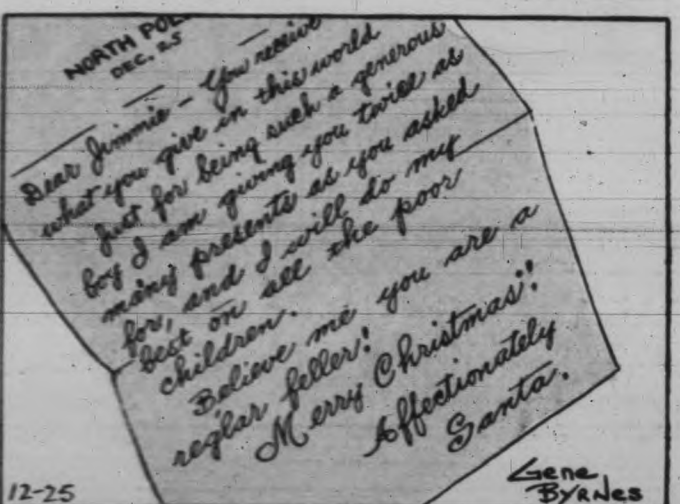 NORTH POLE
DEC. 25
Dear Jimmie - You receive
what you give in this world
Just for being such a generous
boy I am giving you twice as
many presents as you asked
for, and I will do my
best on all the poor
children.
Believe me you are a
reg'lar feller!
Merry Christmas!
Affectionately
Santa.
12-25
Gene
BYRNES